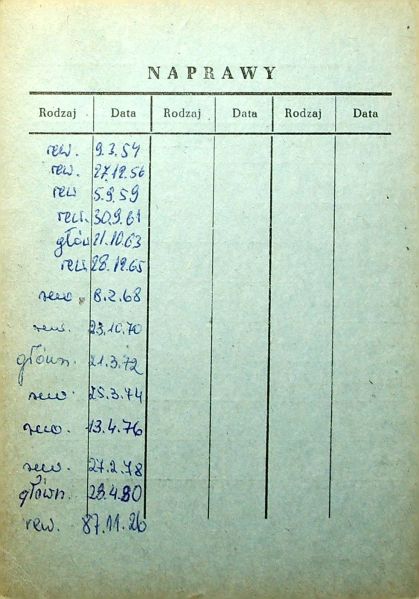 NAPRAWY
Rodzaj Data Rodzaj Data Rodzaj Data
rew. 9.3.54
rew. 27.12.56
rew 5.9.59
rew. 30.9.61
głów 21.10.63
rew 28.12.65
rew. 8.2.68
rew. 23.10.70
główn. 21.3.72
rew. 25.3.74
rew. 13.4.76
rew. 27.2.78
główn. 28.4.80
rew. 87.11.26